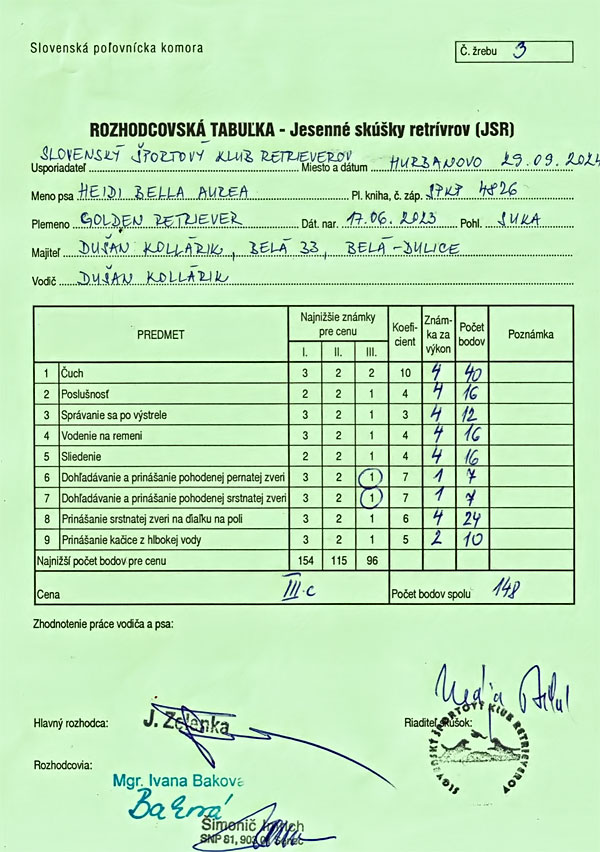 Slovenská poľovnícka komora
Č. žrebu 3
ROZHODCOVSKÁ TABUĽKA - Jesenné skúšky retrívrov (JSR)
Usporiadateľ SLOVENSKÝ ŠPORTOVÝ KLUB RETRIEVEROV Miesto a dátum HURBANOVO 29.09.2024
Meno psa HEIDI BELLA AUREA Pl. kniha, č. záp. SPKP 4826
Plemeno GOLDEN RETRIEVER Dát. nar. 17.06.2023 Pohl. SUKA
Majiteľ DUŠAN KOLLÁRIK, BELÁ 33, BELÁ-DULICE
Vodič DUŠAN KOLLÁRIK
PREDMET Najnižšie známky pre cenu I. II. III. Koeficient Známka za výkon Počet bodov Poznámka
1 Čuch 3 2 2 10 4 40
2 Poslušnosť 2 2 1 4 4 16
3 Správanie sa po výstrele 3 2 1 3 4 12
4 Vodenie na remeni 3 2 1 4 4 16
5 Sliedenie 2 2 1 4 4 16
6 Dohľadávanie a prinášanie pohodenej pernatej zveri 3 2 1 7 1 7
7 Dohľadávanie a prinášanie pohodenej srstnatej zveri 3 2 1 7 1 7
8 Prinášanie srstnatej zveri na diaľku na poli 3 2 1 6 4 24
9 Prinášanie kačice z hlbokej vody 3 2 1 5 2 10
Najnižší počet bodov pre cenu 154 115 96
Cena III.c Počet bodov spolu 148
Zhodnotenie práce vodiča a psa:
Hlavný rozhodca: J. Zelenka Riaditeľ skúšok:
SLOVENSKÝ ŠPORTOVÝ KLUB RETRIEVEROV
Rozhodcovia:
Mgr. Ivana Baková
Baková
Šimonič
SNP 81, 903 01 Senec